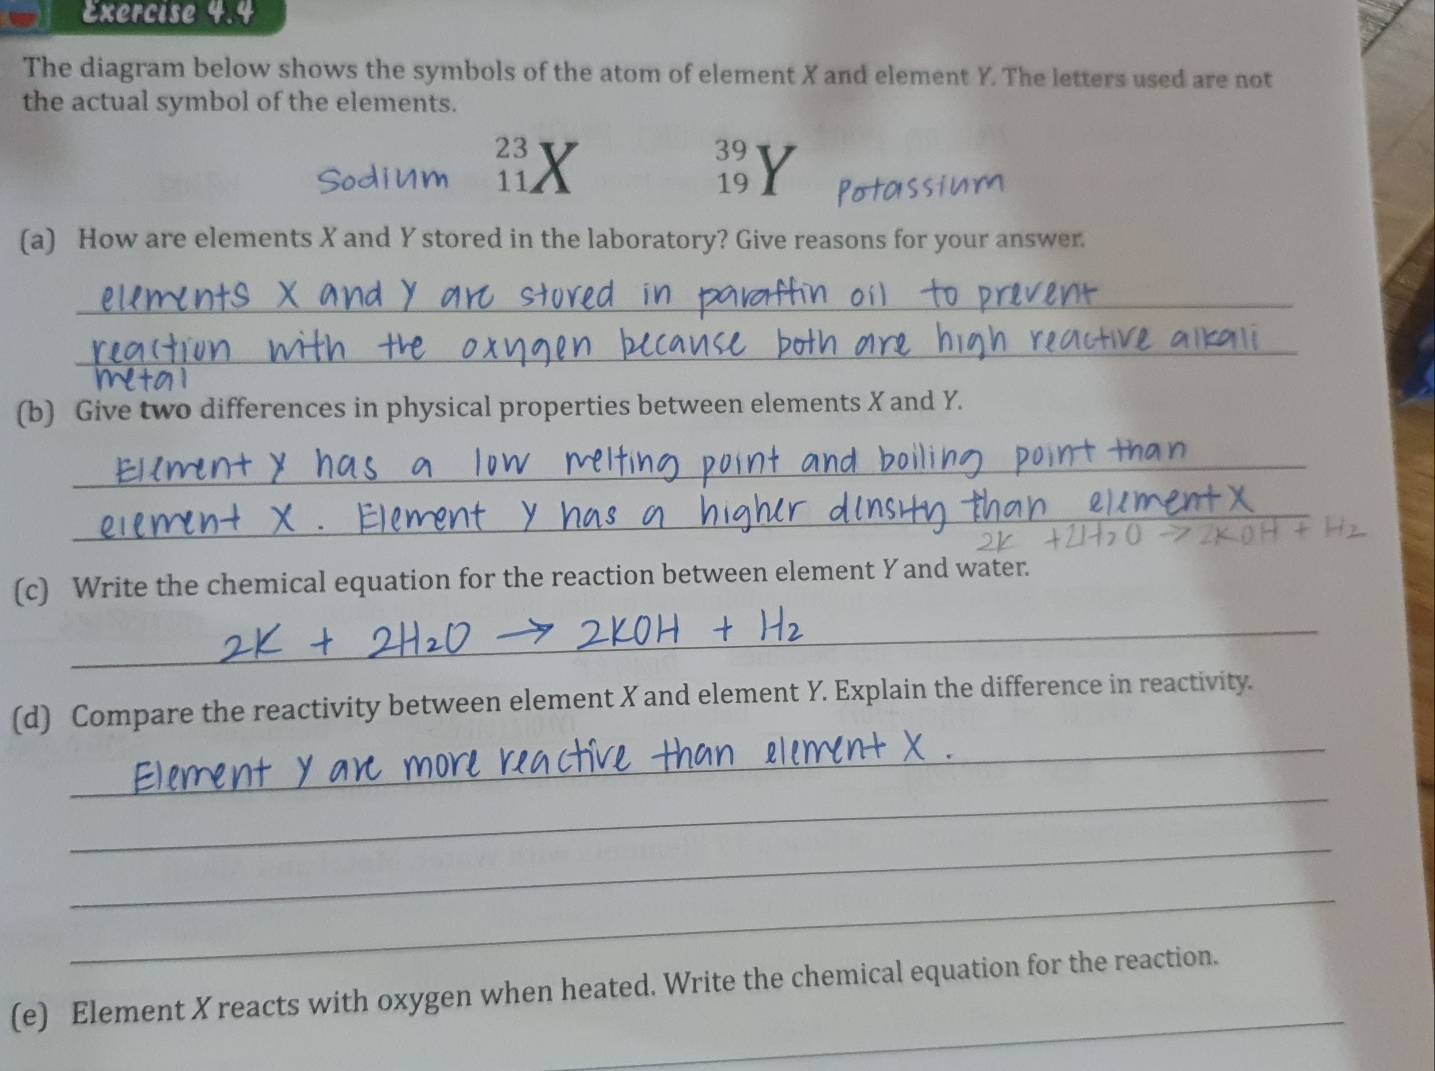 Exercise 4.4
The diagram below shows the symbols of the atom of element X and element Y. The letters used are not
the actual symbol of the elements.
Sodium 23 11 X 39 19 Y Potassium
(a) How are elements X and Y stored in the laboratory? Give reasons for your answer.
elements X and Y are stored in paraffin oil to prevent
reaction with the oxygen because both are high reactive alkali
metal
(b) Give two differences in physical properties between elements X and Y.
Element Y has a low melting point and boiling point than
element X. Element Y has a higher density than element X
2K + 2H2O → 2KOH + H2
(c) Write the chemical equation for the reaction between element Y and water.
2K + 2H2O → 2KOH + H2
(d) Compare the reactivity between element X and element Y. Explain the difference in reactivity.
Element Y are more reactive than element X.
(e) Element X reacts with oxygen when heated. Write the chemical equation for the reaction.